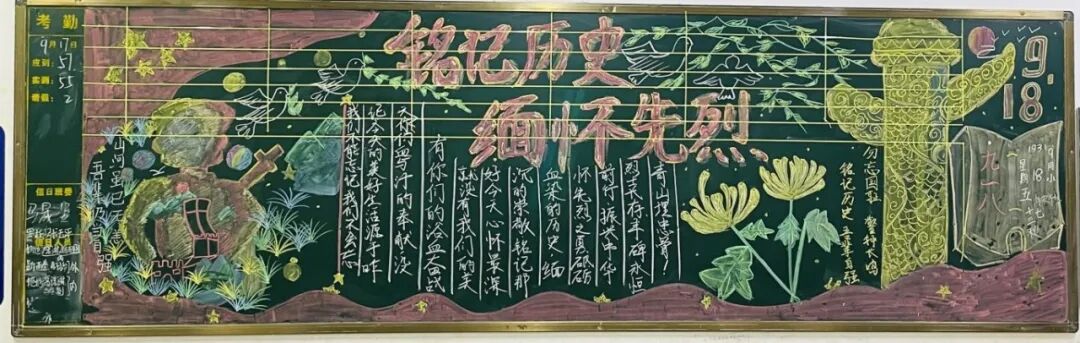 考勤
9月17日
应到：57
实到：55
请假：2
值日班委
值日人员
铭记历史
缅怀先烈
山河虽已无恙
吾辈仍当自强
青山埋忠骨
烈英存丰碑永恒
前行振兴中华
怀先烈之勇砥砺
血染的历史 缅
沉的崇敬铭记那
好今天心怀最深
就没有我们的美
有你们的浴血奋战
天你们血与汗的奉献没
记今天的美好生活源于昨
我们不能忘记我们不会忘
勿忘国耻 警钟长鸣
铭记历史 吾辈自强
9.18
九一八
1931
9月
18